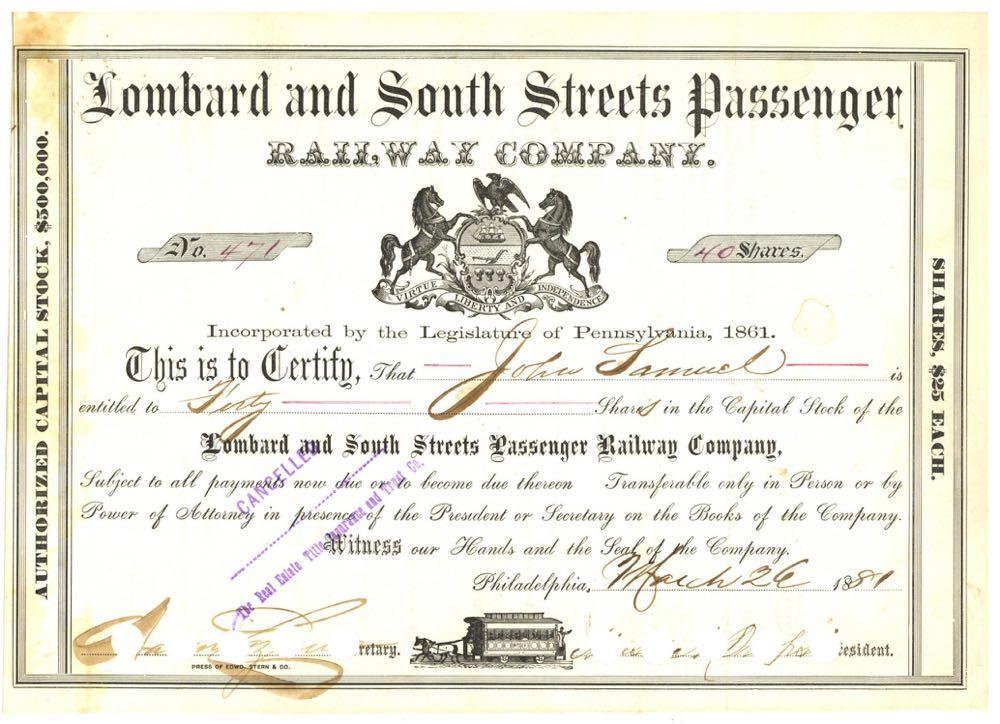 Lombard and South Streets Passenger
RAILWAY COMPANY.
No. 471
40 Shares.
VIRTUE LIBERTY AND INDEPENDENCE
Incorporated by the Legislature of Pennsylvania, 1861.
This is to Certify, That John Samuel is
entitled to Forty Shares in the Capital Stock of the
Lombard and South Streets Passenger Railway Company,
Subject to all payments now due or to become due thereon Transferable only in Person or by
Power of Attorney in presence of the President or Secretary on the Books of the Company.
Witness our Hands and the Seal of the Company.
Philadelphia, March 26 1881
retary.
esident.
PRESS OF EDWD. STERN & CO.
AUTHORIZED CAPITAL STOCK, $500,000.
SHARES, $25 EACH.
CANCELLED
The Real Estate Title Insurance and Trust Co.